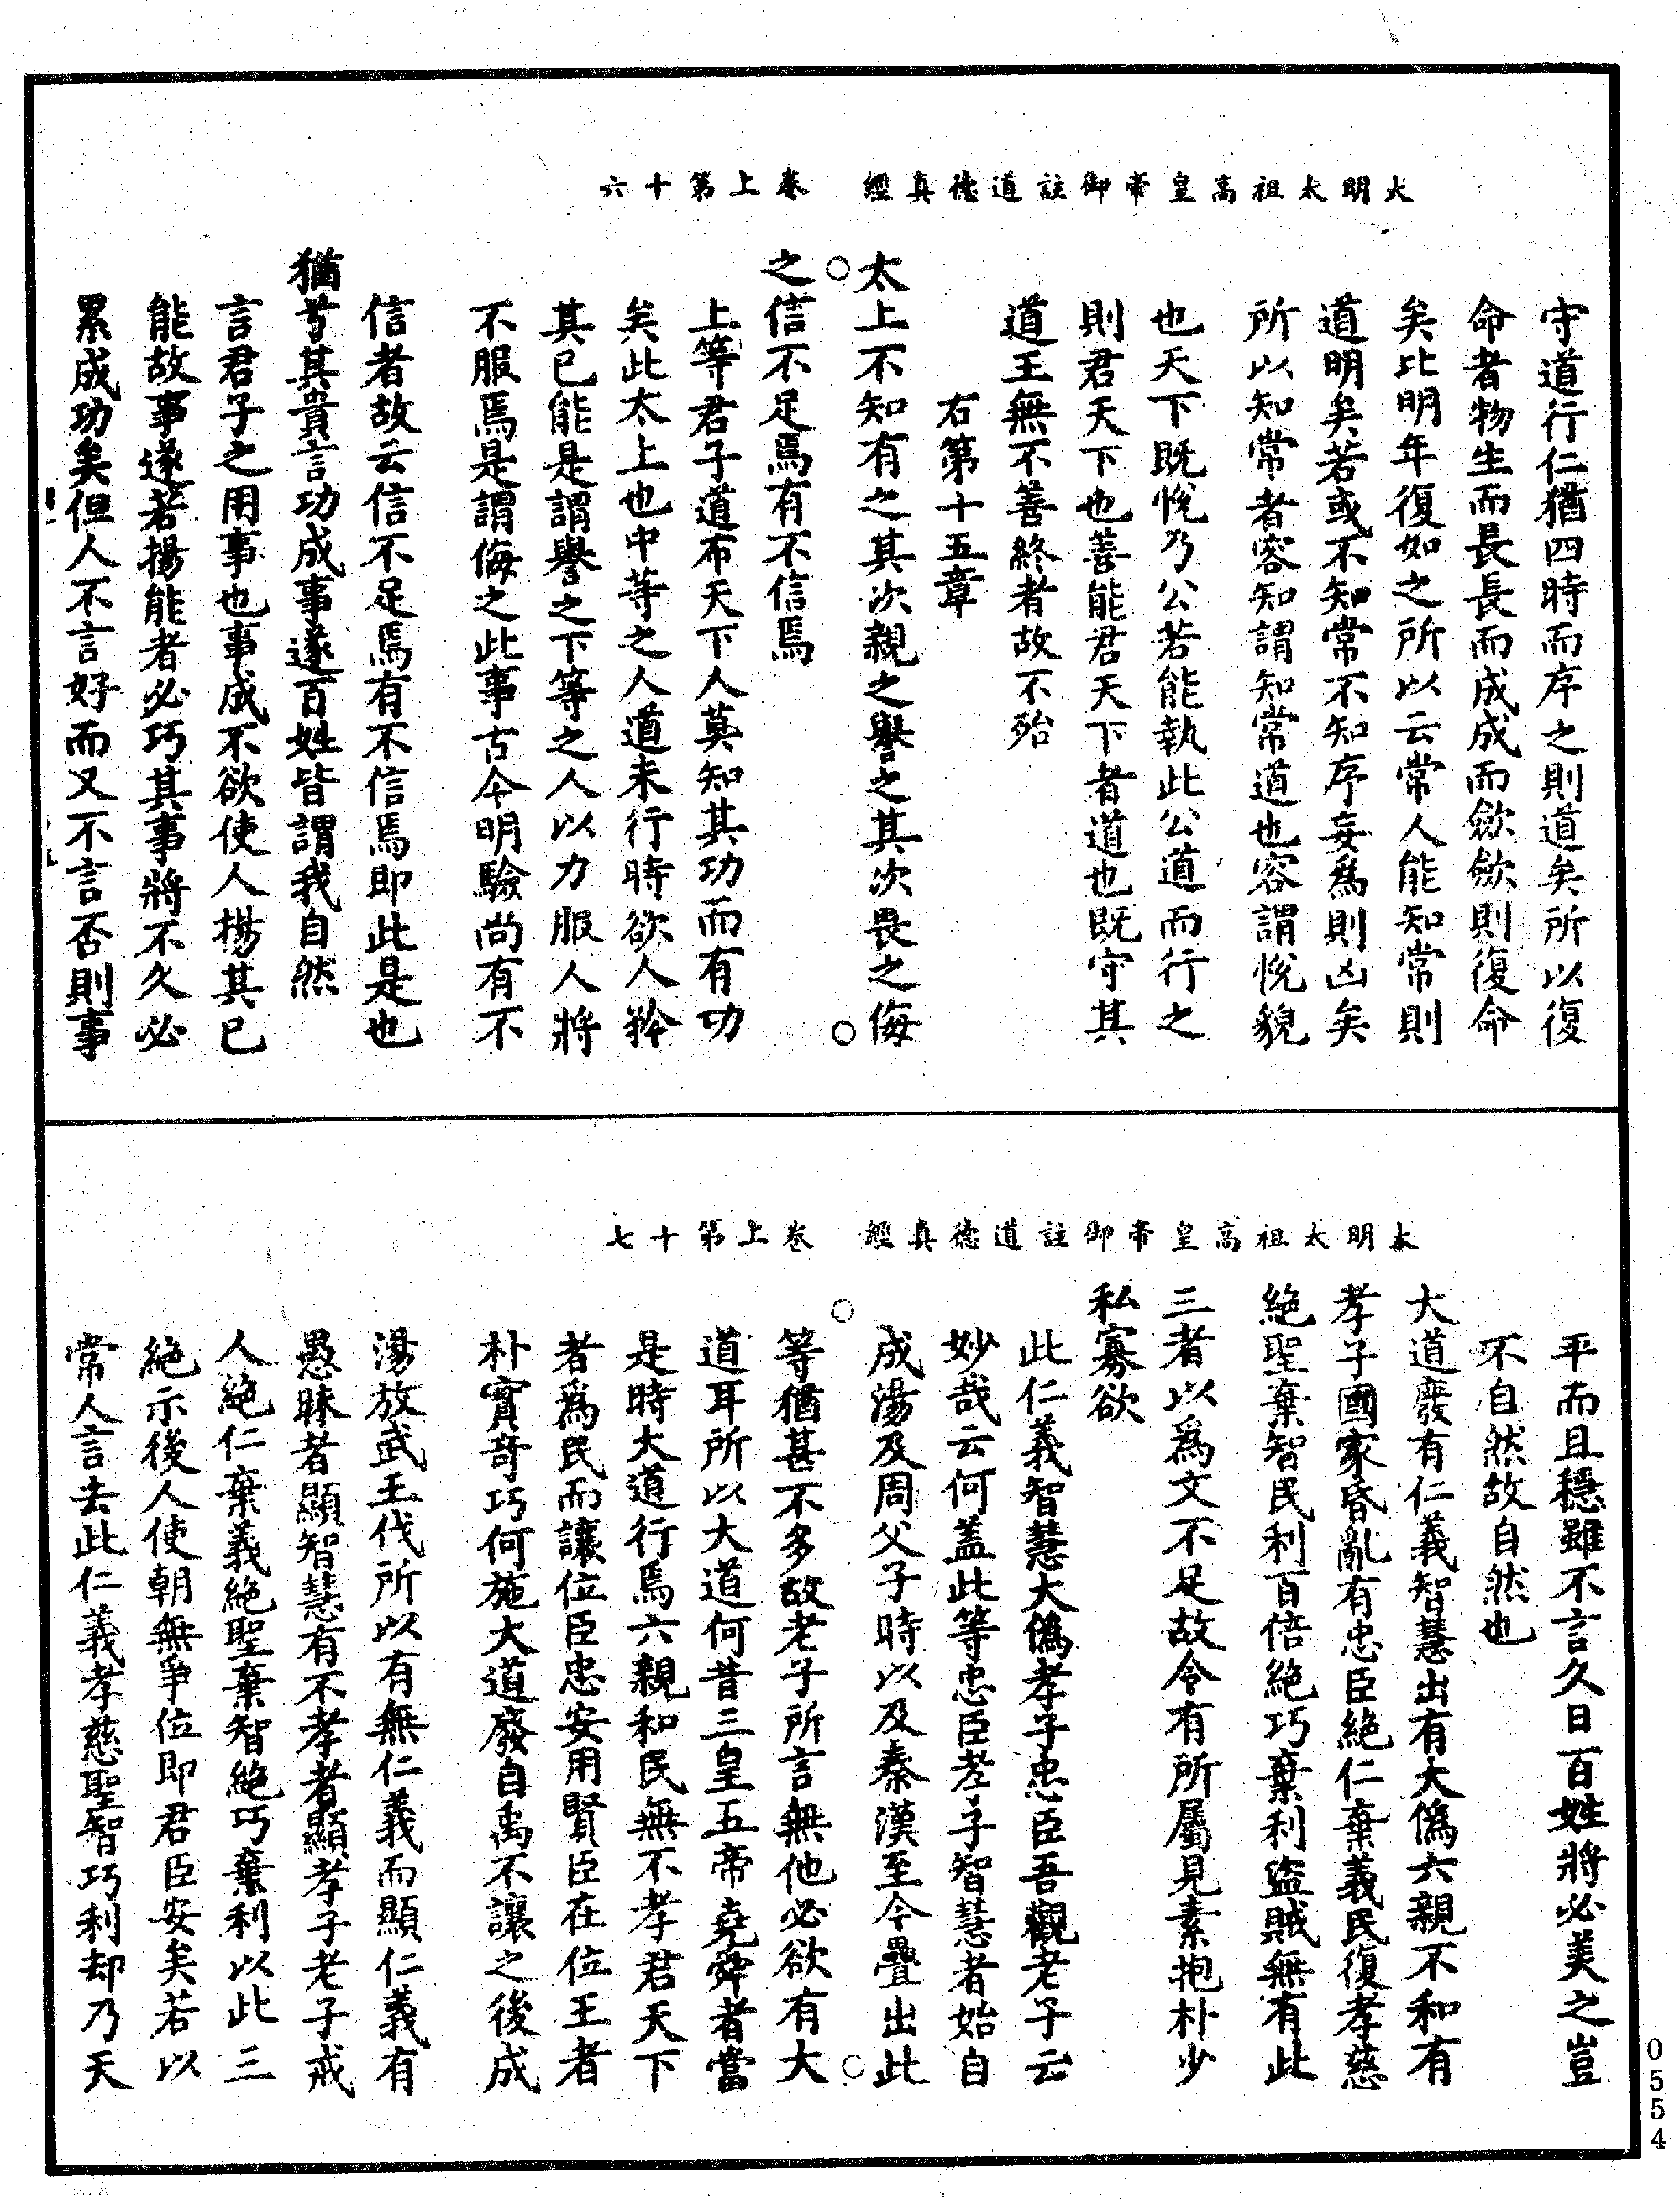 大明太祖高皇帝御註道德真經　卷上第十六
守道行仁猶四時而序之則道矣所以復
命者物生而長長而成成而斂斂則復命
矣比明年復如之所以云常人能知常則
道明矣若或不知常不知序妄為則凶矣
所以知常者容知謂知常道也容謂悅貌
也天下既悅乃公若能執此公道而行之
則君天下也善能君天下者道也既守其
道王無不善終者故不殆
右第十五章
太上不知有之其次親之譽之其次畏之侮
之信不足焉有不信焉
上等君子道布天下人莫知其功而有功
矣此太上也中等之人道未行時欲人矜
其已能是謂譽之下等之人以力服人將
不服焉是謂侮之此事古今明驗尚有不
信者故云信不足焉有不信焉即此是也
猶兮其貴言功成事遂百姓皆謂我自然
言君子之用事也事成不欲使人揚其已
能故事遂若揚能者必巧其事將不久必
累成功矣但人不言好而又不言否則事
大明太祖高皇帝御註道德真經　卷上第十七
平而且穩雖不言久日百姓將必美之豈
不自然故自然也
大道廢有仁義智慧出有大偽六親不和有
孝子國家昏亂有忠臣絕仁棄義民復孝慈
絕聖棄智民利百倍絕巧棄利盜賊無有此
三者以為文不足故令有所屬見素抱朴少
私寡欲
此仁義智慧大偽孝子忠臣吾觀老子云
妙哉云何蓋此等忠臣孝子智慧者始自
成湯及周父子時以及秦漢至今疊出此
等猶甚不多故老子所言無他必欲有大
道耳所以大道何昔三皇五帝堯舜者當
是時大道行焉六親和民無不孝君天下
者為民而讓位臣忠安用賢臣在位王者
朴實奇巧何施大道廢自禹不讓之後成
湯放武王伐所以有無仁義而顯仁義有
愚昧者顯智慧有不孝者顯孝子老子戒
人絕仁棄義絕聖棄智絕巧棄利以此三
絕示後人使朝無爭位即君臣安矣若以
常人言去此仁義孝慈聖智巧利却乃天
0554